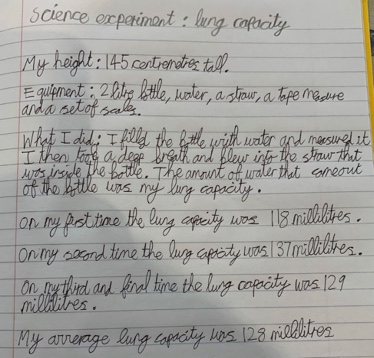 Science experiment : lung capacity
My height : 145 centremetres tall.
Equipment : 2 litre bottle, water, a straw, a tape measure
and a set of scales.
What I did : I filled the bottle with water and measured it
I then took a deep breath and blew into the straw that
was inside the bottle. The amount of water that came out
of the bottle was my lung capacity.
On my first time the lung capacity was 118 millilitres.
On my second time the lung capacity was 137 millilitres.
On my third and final time the lung capacity was 129
millilitres.
My arrerage lung capacity was 128 millilitres